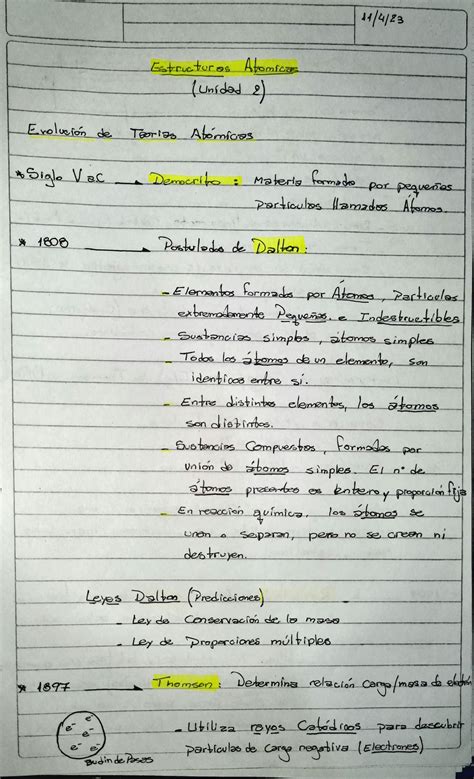 11/4/23
Estructuras Atomicas
(Unidad 2)
Evolución de Teorias Atómicas
* Siglo V a.C → Democrito : Materia formado por pequeñas
particulas llamados Átomos.
* 1808 → Postulados de Dalton :
- Elementos formados por Átomos, Particulas
extremadamente Pequeñas e Indestructibles
- Sustancias simples, átomos simples
- Todos los átomos de un elemento, son
identicos entre si.
- Entre distintos elementos, los átomos
son distintos.
- Sustancias Compuestas, formados por
unión de átomos simples. El n° de
átomos presentes es entero y proporción fija
- En reacción química, los átomos se
unen o separan, pero no se crean ni
destruyen.
Leyes Dalton (Predicciones)
- Ley de Conservación de la masa
- Ley de Proporciones múltiples
* 1897 → Thomson : Determina relación carga/masa de electrón
- Utiliza rayos Catódicos para descubrir
particulas de carga negativa (Electrones)
e⁻ e⁻ e⁻ e⁻ e⁻
Budin de Pasas